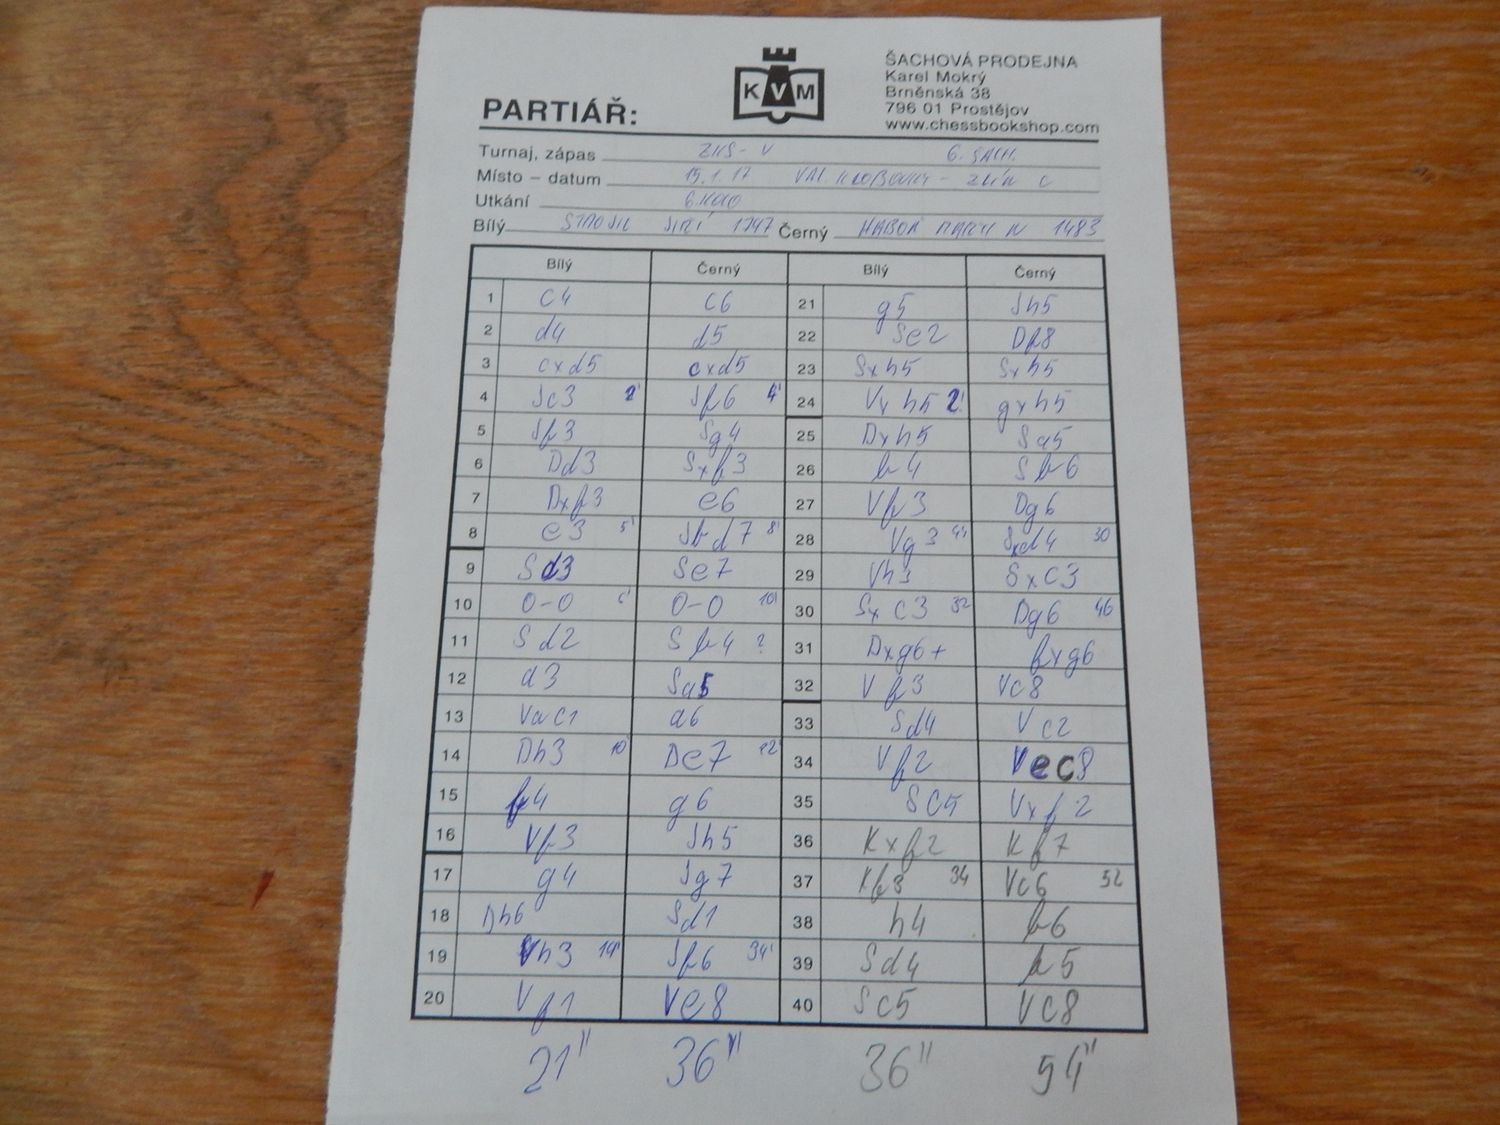 ŠACHOVÁ PRODEJNA
Karel Mokrý
Brněnská 38
796 01 Prostějov
www.chessbookshop.com
KVM
PARTIÁŘ:
Turnaj, zápas 6. ŠACH.
Místo – datum 15.1.17 ZLÍN C
Utkání 6 KOLO
Bílý JIŘÍ 1747 Černý 1483
Bílý Černý Bílý Černý
1 c4 c6 21 g5 Jh5
2 d4 d5 22 Se2 Df8
3 cxd5 cxd5 23 Sxh5 Sxh5
4 Jc3 2' Jf6 4' 24 Vxh5 2! gxh5
5 Jf3 Jg4 25 Dxh5 Sa5
6 Dd3 Sxf3 26 f4 Sb6
7 Dxf3 e6 27 Vf3 Dg6
8 e3 5' Jbd7 8' 28 Vg3 44 Sxd4 30
9 Sd3 Se7 29 Vh3 Sxc3
10 0-0 6' 0-0 10' 30 Sxc3 32 Dg6 46
11 Sd2 Sb4 ? 31 Dxg6+ fxg6
12 a3 Sa5 32 Vf3 Vc8
13 Vac1 a6 33 Sd4 Vc2
14 Dh3 10' De7 12' 34 Vf2 Vec8
15 f4 g6 35 Sc5 Vxf2
16 Vf3 Jh5 36 Kxf2 Kf7
17 g4 Jg7 37 Kf3 34 Vc6 52
18 Dh6 Sd1 38 h4 b6
19 Vh3 19' Jf6 34' 39 Sd4 b5
20 Vf1 Ve8 40 Sc5 Vc8
21" 36" 36" 54"